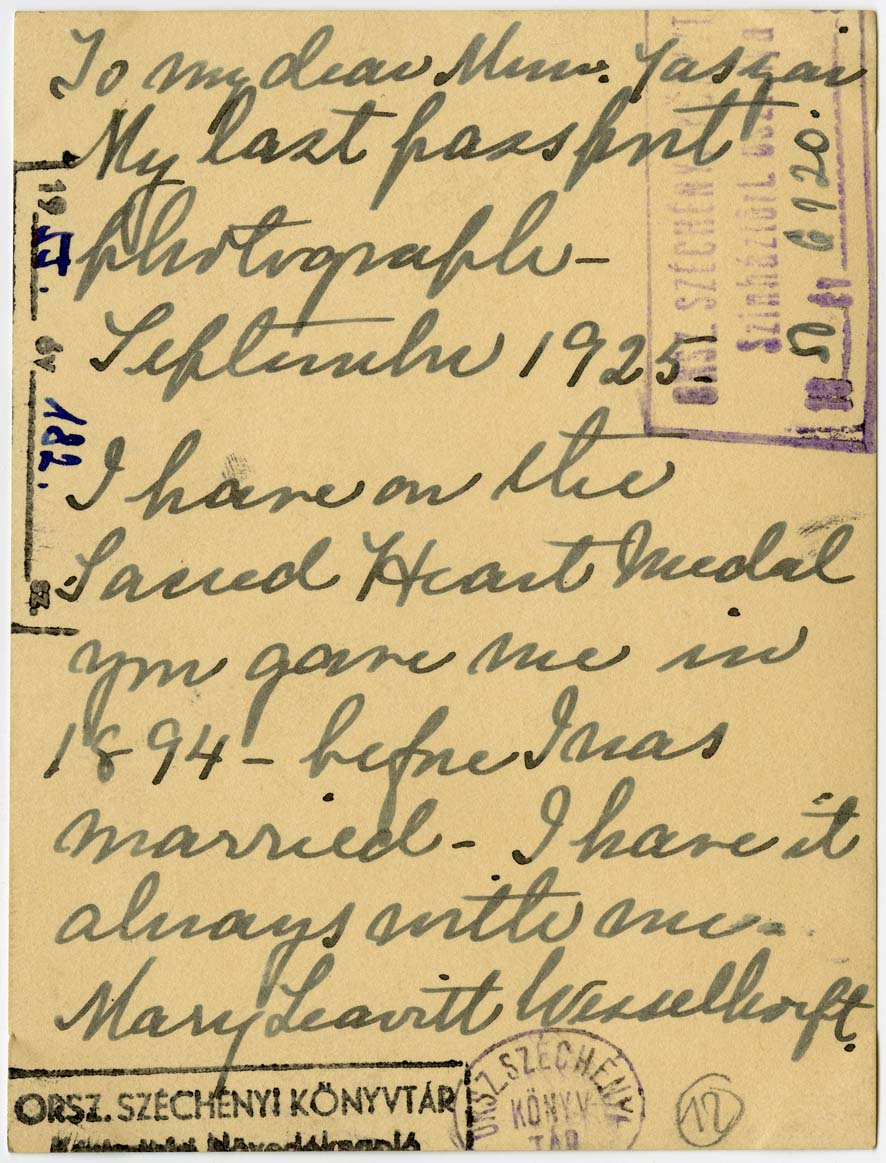 To my dear Mme. Jaszai
My last passport
photograph –
September 1925.
I have on the
Sacred Heart Medal
you gave me in
1894 – before I was
married – I have it
always with me –
Mary Leavitt Wesselhoeft.
ORSZ. SZÉCHÉNYI KÖNYVTÁR
Növedéknapló
ORSZ. SZÉCHÉNYI
KÖNYV
TÁR
12
ORSZ. SZÉCHÉNYI
19
év
182.
sz.